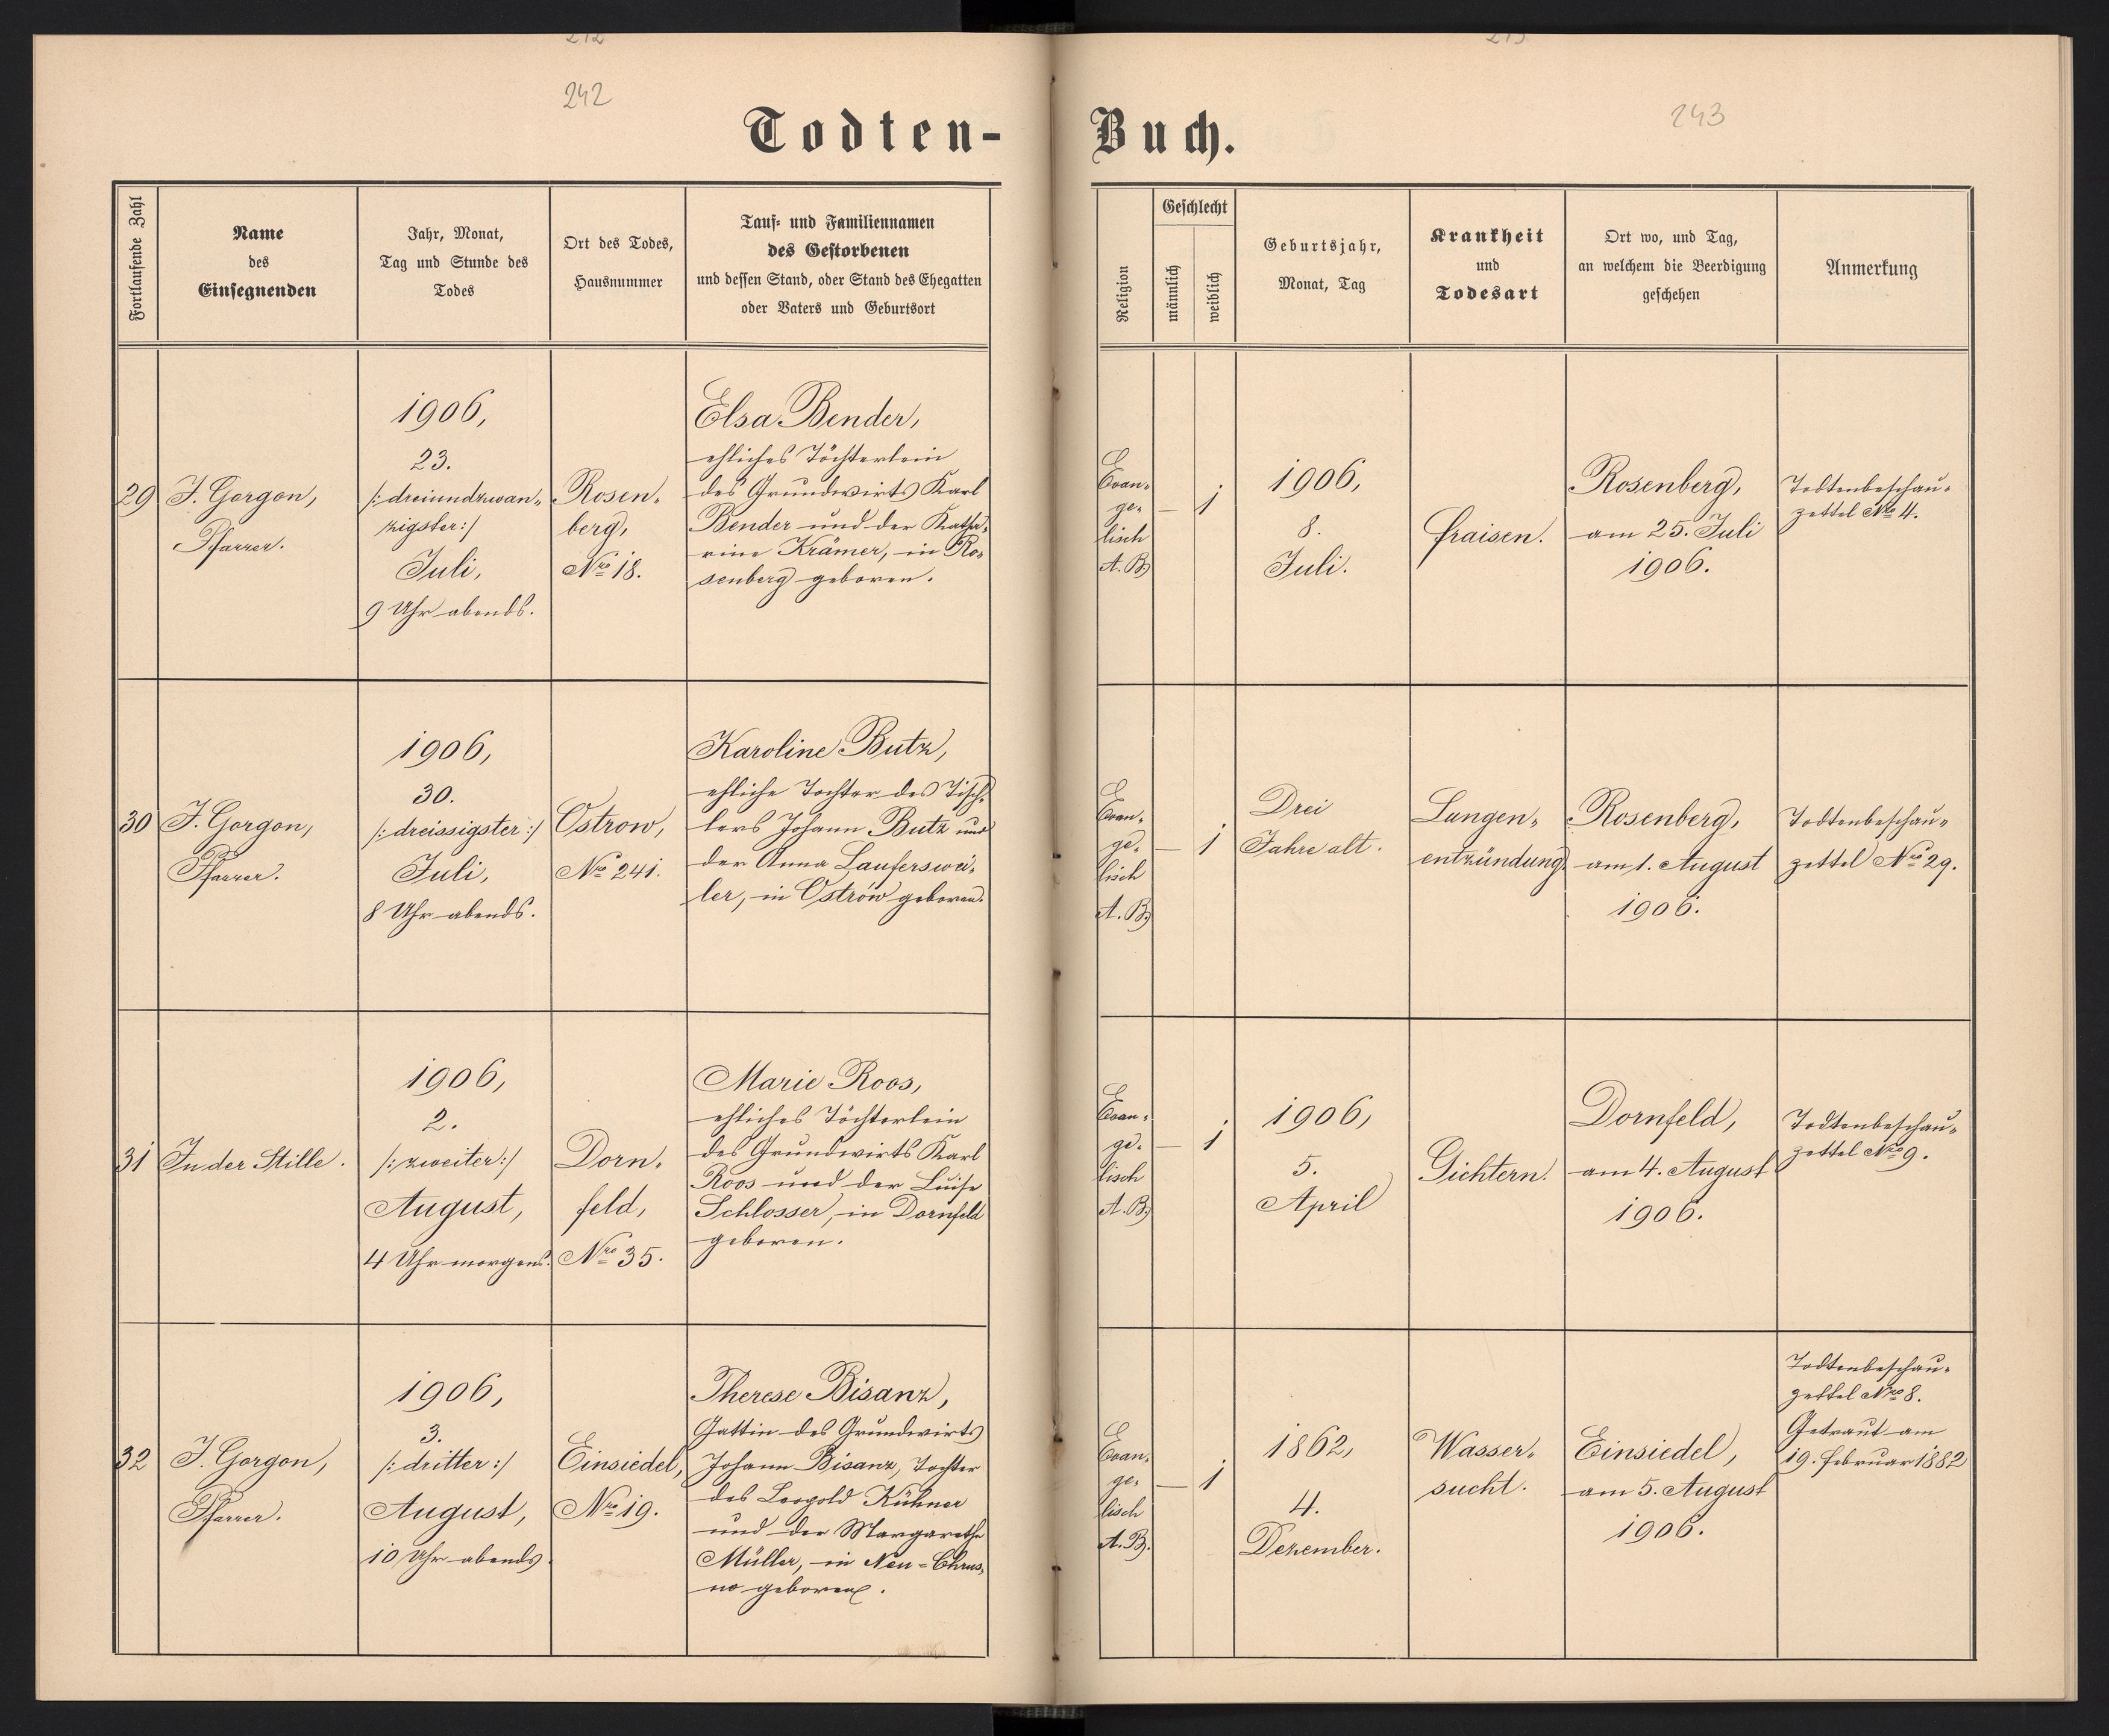 242
243
Todten-
Buch.
Fortlaufende Zahl
Name
des
Einsegnenden
Jahr, Monat,
Tag und Stunde des
Todes
Ort des Todes,
Hausnummer
Tauf- und Familiennamen
des Gestorbenen
und dessen Stand, oder Stand des Ehegatten
oder Vaters und Geburtsort
Religion
Geschlecht
männlich
weiblich
Geburtsjahr,
Monat, Tag
Krankheit
und
Todesart
Ort wo, und Tag,
an welchem die Beerdigung
geschehen
Anmerkung
29
J. Gorgon,
Pfarrer.
1906,
23.
/: dreiundzwan-
zigster :/
Juli,
9 Uhr abends.
Rosen-
berg,
Nro 18.
Elsa Bender,
ehliches Töchterlein
des Grundwirts Karl
Bender und der Katha-
rine Krämer, in Ro-
senberg geboren.
Evan-
ge-
lisch
A. B.
—
1
1906,
8.
Juli.
Fraisen.
Rosenberg,
am 25. Juli
1906.
Todtenbeschau-
zettel Nro 4.
30
J. Gorgon,
Pfarrer.
1906,
30.
/: dreissigster :/
Juli,
8 Uhr abends.
Ostrow,
Nro 241.
Karoline Butz,
ehliche Tochter des Tisch-
lers Johann Butz und
der Anna Laufersweí-
ler, in Ostrów geboren.
Evan-
ge-
lisch
A. B.
—
1
Drei
Jahre alt.
Lungen-
entzündung.
Rosenberg,
am 1. August
1906.
Todtenbeschau-
zettel Nro 29.
31
In der Stille.
1906,
2.
/: zweiter :/
August,
4 Uhr morgens.
Dorn-
feld,
Nro 35.
Marie Roos,
ehliches Töchterlein
des Grundwirts Karl
Roos und der Luise
Schlosser, in Dornfeld
geboren.
Evan-
ge-
lisch
A. B.
—
1
1906,
5.
April
Gichtern.
Dornfeld,
am 4. August
1906.
Todtenbeschau-
zettel Nro 9.
32
J. Gorgon,
Pfarrer.
1906,
3.
/: dritter :/
August,
10 Uhr abends.
Einsiedel,
Nro 19.
Therese Bisanz,
Gattin des Grundwirts
Johann Bisanz, Tochter
des Leopold Kühner
und der Margarethe
Müller, in Neu-Chrus-
no geboren.
Evan-
ge-
lisch
A. B.
—
1
1862,
4.
Dezember.
Wasser-
sucht.
Einsiedel,
am 5. August
1906.
Todtenbeschau-
zettel Nro 8.
Getraut am
19. Februar 1882